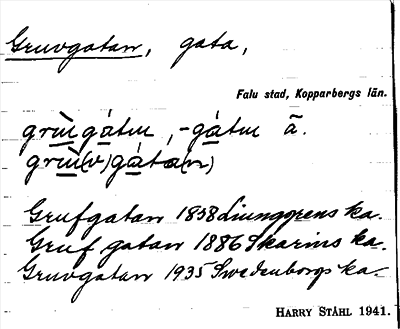 Gruvgatan, gata,
Falu stad, Kopparbergs län.
grùgátu, -gátu ã.
grù(v)gáta(n)
Grufgatan 1858 Ljunggrens ka.
Gruf gatan 1886 Skarins ka.
Gruvgatan 1935 Swedenborgs ka
HARRY STÅHL 1941.